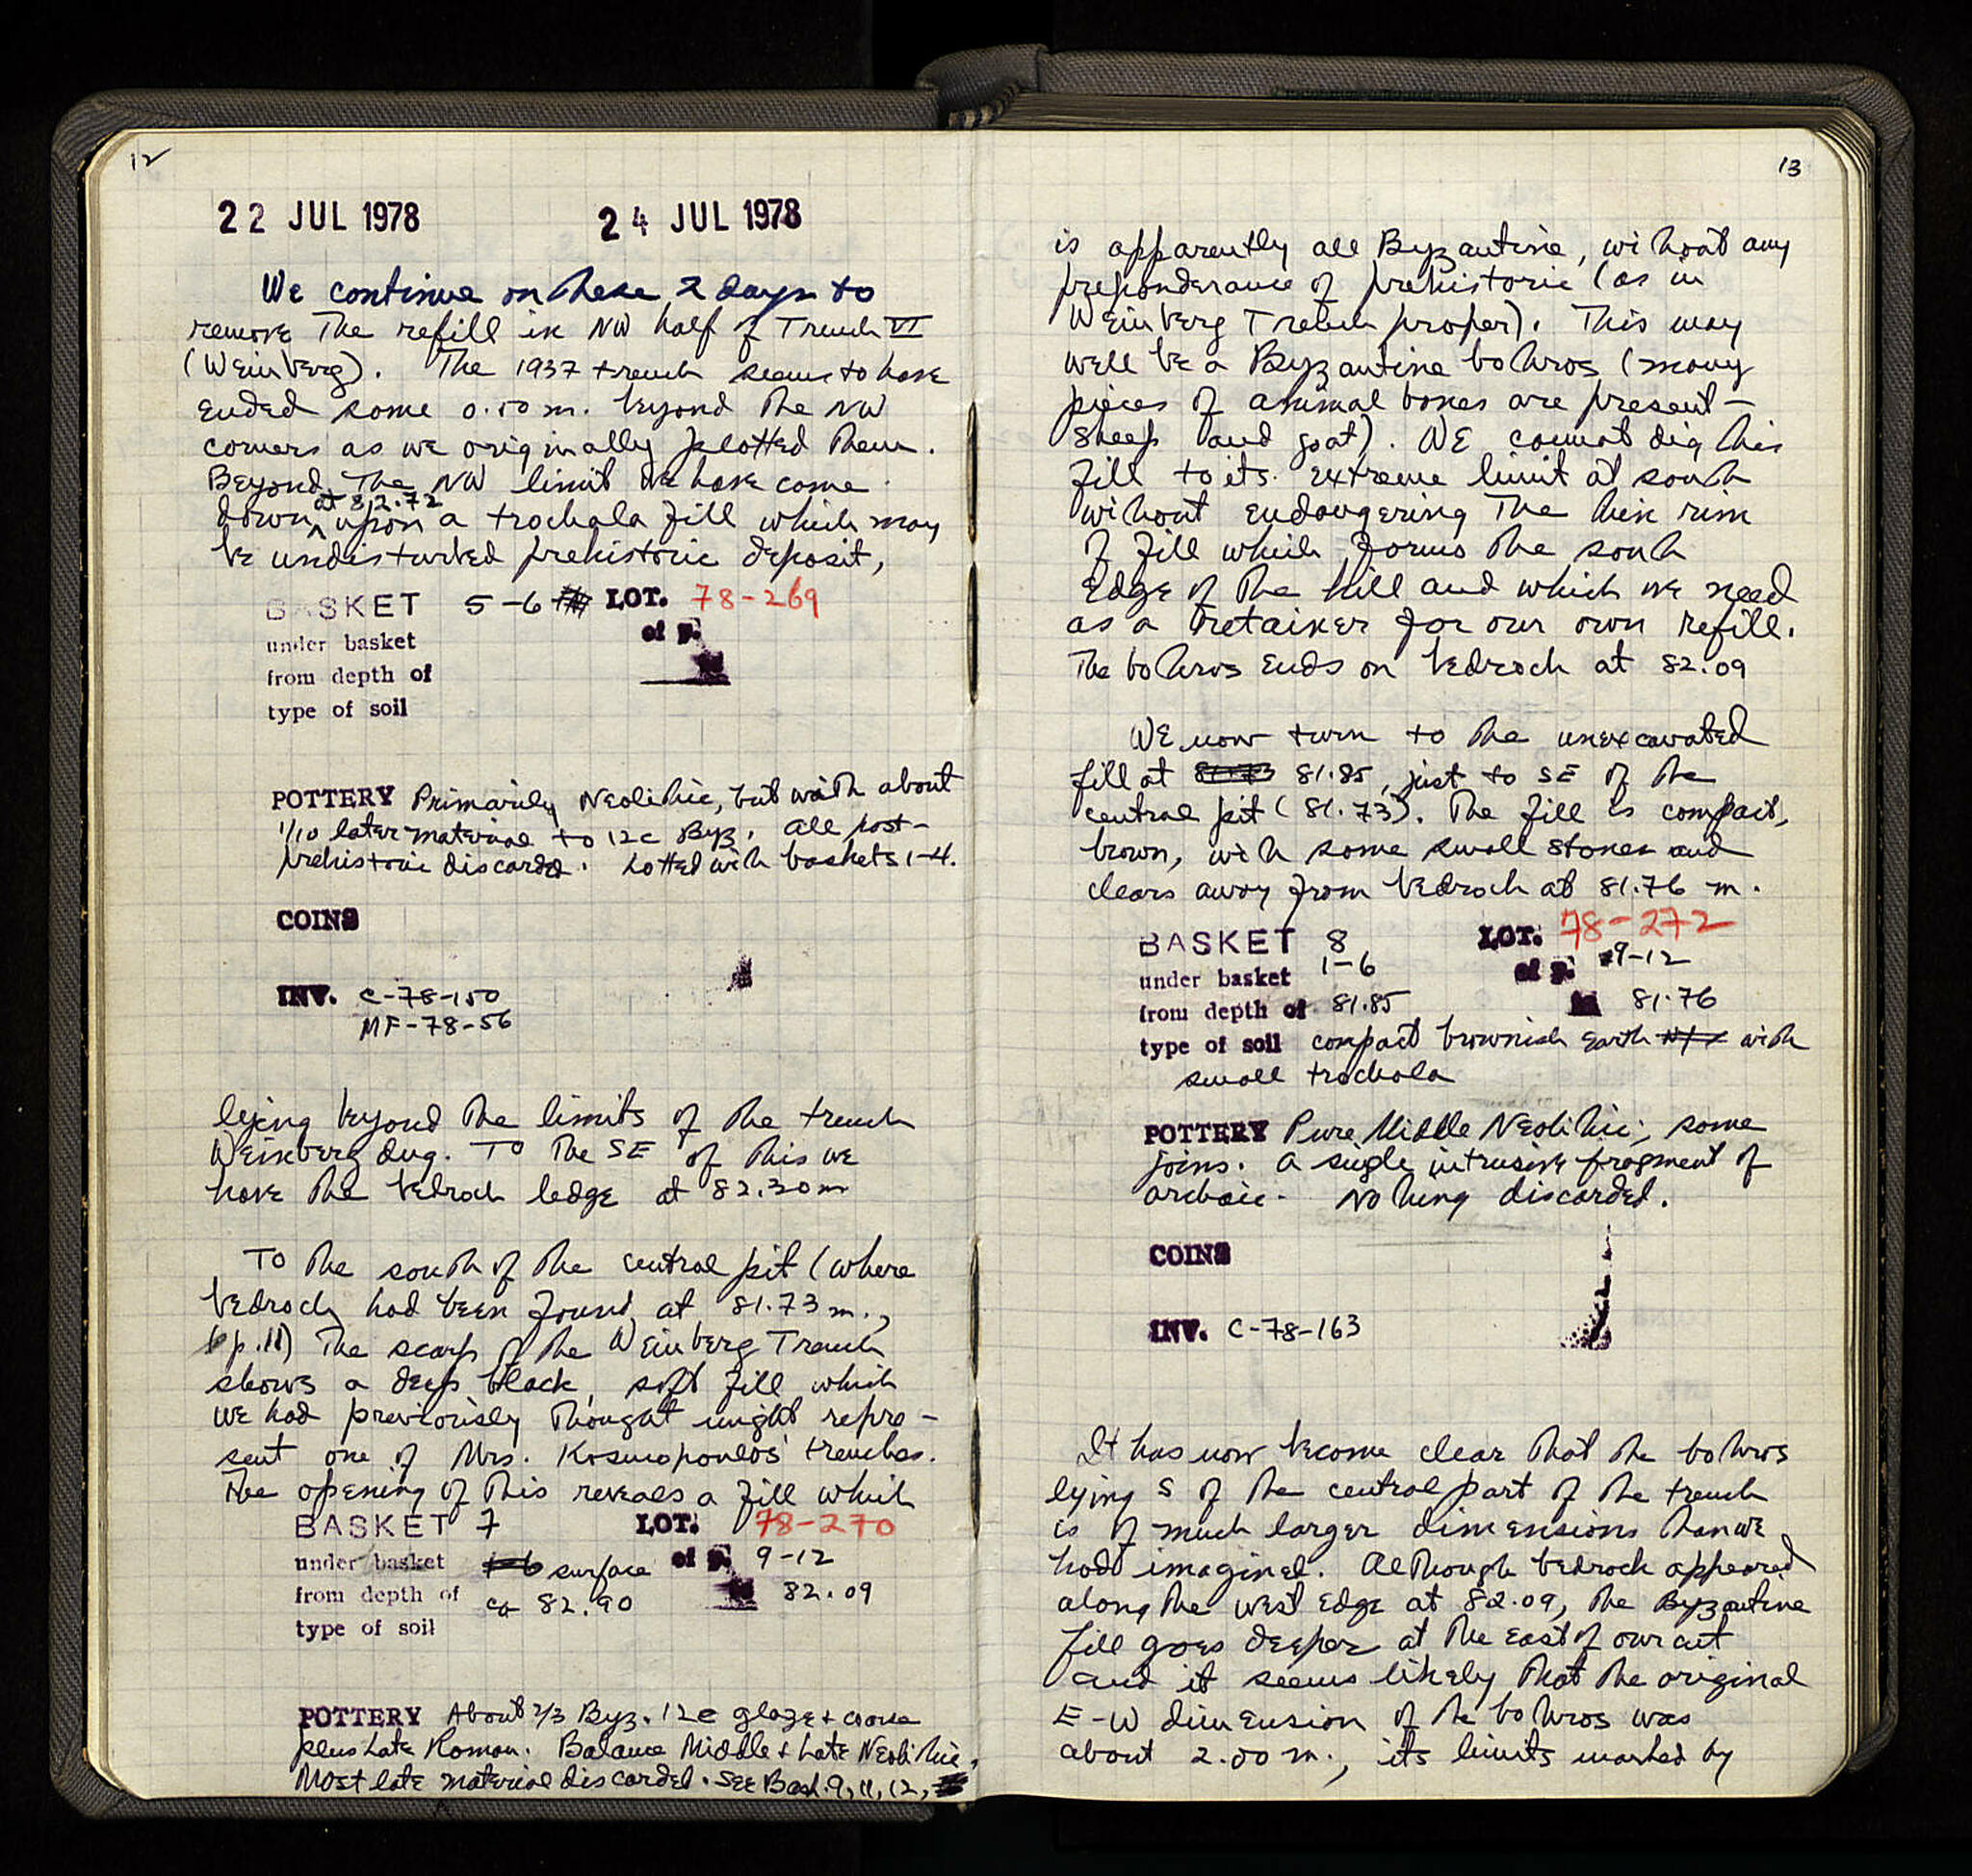 12
22 JUL 1978 24 JUL 1978
We continue on these 2 days to
remove the refill in NW half of Trench VI
(Weinberg). The 1937 trench seems to have
ended some 0.50 m. beyond the NW
corners as we originally plotted them.
Beyond the NW limit we have come
down at 82.72 upon a trochala fill which may
be undisturbed prehistoric deposit,
BASKET 5-6 LOT. 78-269
under basket of p.
from depth of to
type of soil
POTTERY Primarily Neolithic, but with about
1/10 later material to 12c Byz. All post-
prehistoric discarded. Lotted with baskets 1-4.
COINS
INV. C-78-150
MF-78-56
lying beyond the limits of the trench
Weinberg dug. To the SE of this we
have the bedrock ledge at 82.30 m
To the south of the central pit (where
bedrock had been found at 81.73 m.,
p.11) the scarp of the Weinberg Trench
shows a deep black, soft fill which
we had previously thought might repre-
sent one of Mrs. Kosmopoulos' trenches.
The opening of this reveals a fill which
BASKET 7 LOT. 78-270
under basket 1-6 surface of p. 9-12
from depth of ca 82.90 to 82.09
type of soil
POTTERY About 2/3 Byz. 12c glaze + coarse
plus Late Roman. Balance Middle + Late Neolithic.
Most late material discarded. See Bask. 9, 11, 12,
13
is apparently all Byzantine, without any
preponderance of prehistoric (as in
Weinberg Trench proper). This may
well be a Byzantine bothros (many
pieces of animal bones are present -
sheep and goat). We cannot dig this
fill to its extreme limit at south
without endangering the thin rim
of fill which forms the south
edge of the hill and which we need
as a retainer for our own refill.
The bothros ends on bedrock at 82.09
We now turn to the unexcavated
fill at 81.73 81.85, just to SE of the
central pit (81.73). The fill is compact,
brown, with some small stones and
clears away from bedrock at 81.76 m.
BASKET 8 LOT. 78-272
under basket 1-6 of p. 9-12
from depth of 81.85 to 81.76
type of soil compact brownish earth with
small trochala
POTTERY Pure Middle Neolithic, some
joins. A single intrusive fragment of
archaic. Nothing discarded.
COINS
INV. C-78-163
It has now become clear that the bothros
lying S of the central part of the trench
is of much larger dimensions than we
had imagined. Although bedrock appeared
along the west edge at 82.09, the Byzantine
fill goes deeper at the east of our cut
and it seems likely that the original
E-W dimension of the bothros was
about 2.00 m., its limits marked by